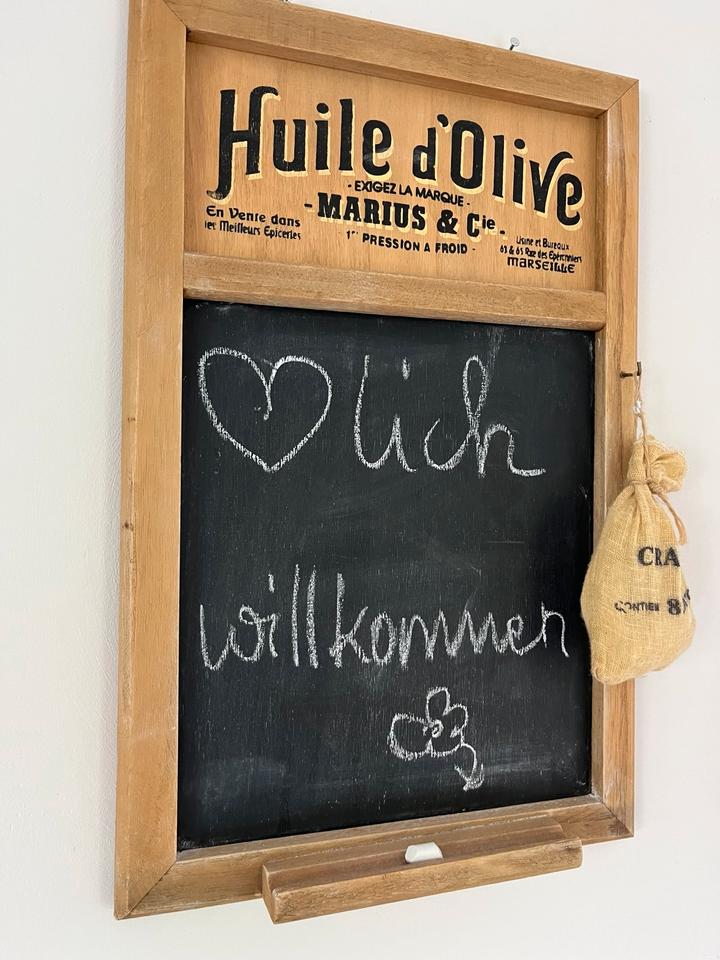 Huile d'Olive
- EXIGEZ LA MARQUE -
- MARIUS & Cie -
En Vente dans
les Meilleurs Epiceries
1re PRESSION A FROID -
Usine et Bureaux
63 & 65 Rue des Eperonniers
MARSEILLE
♡lich
willkommen
CRA
CONTIEN 8